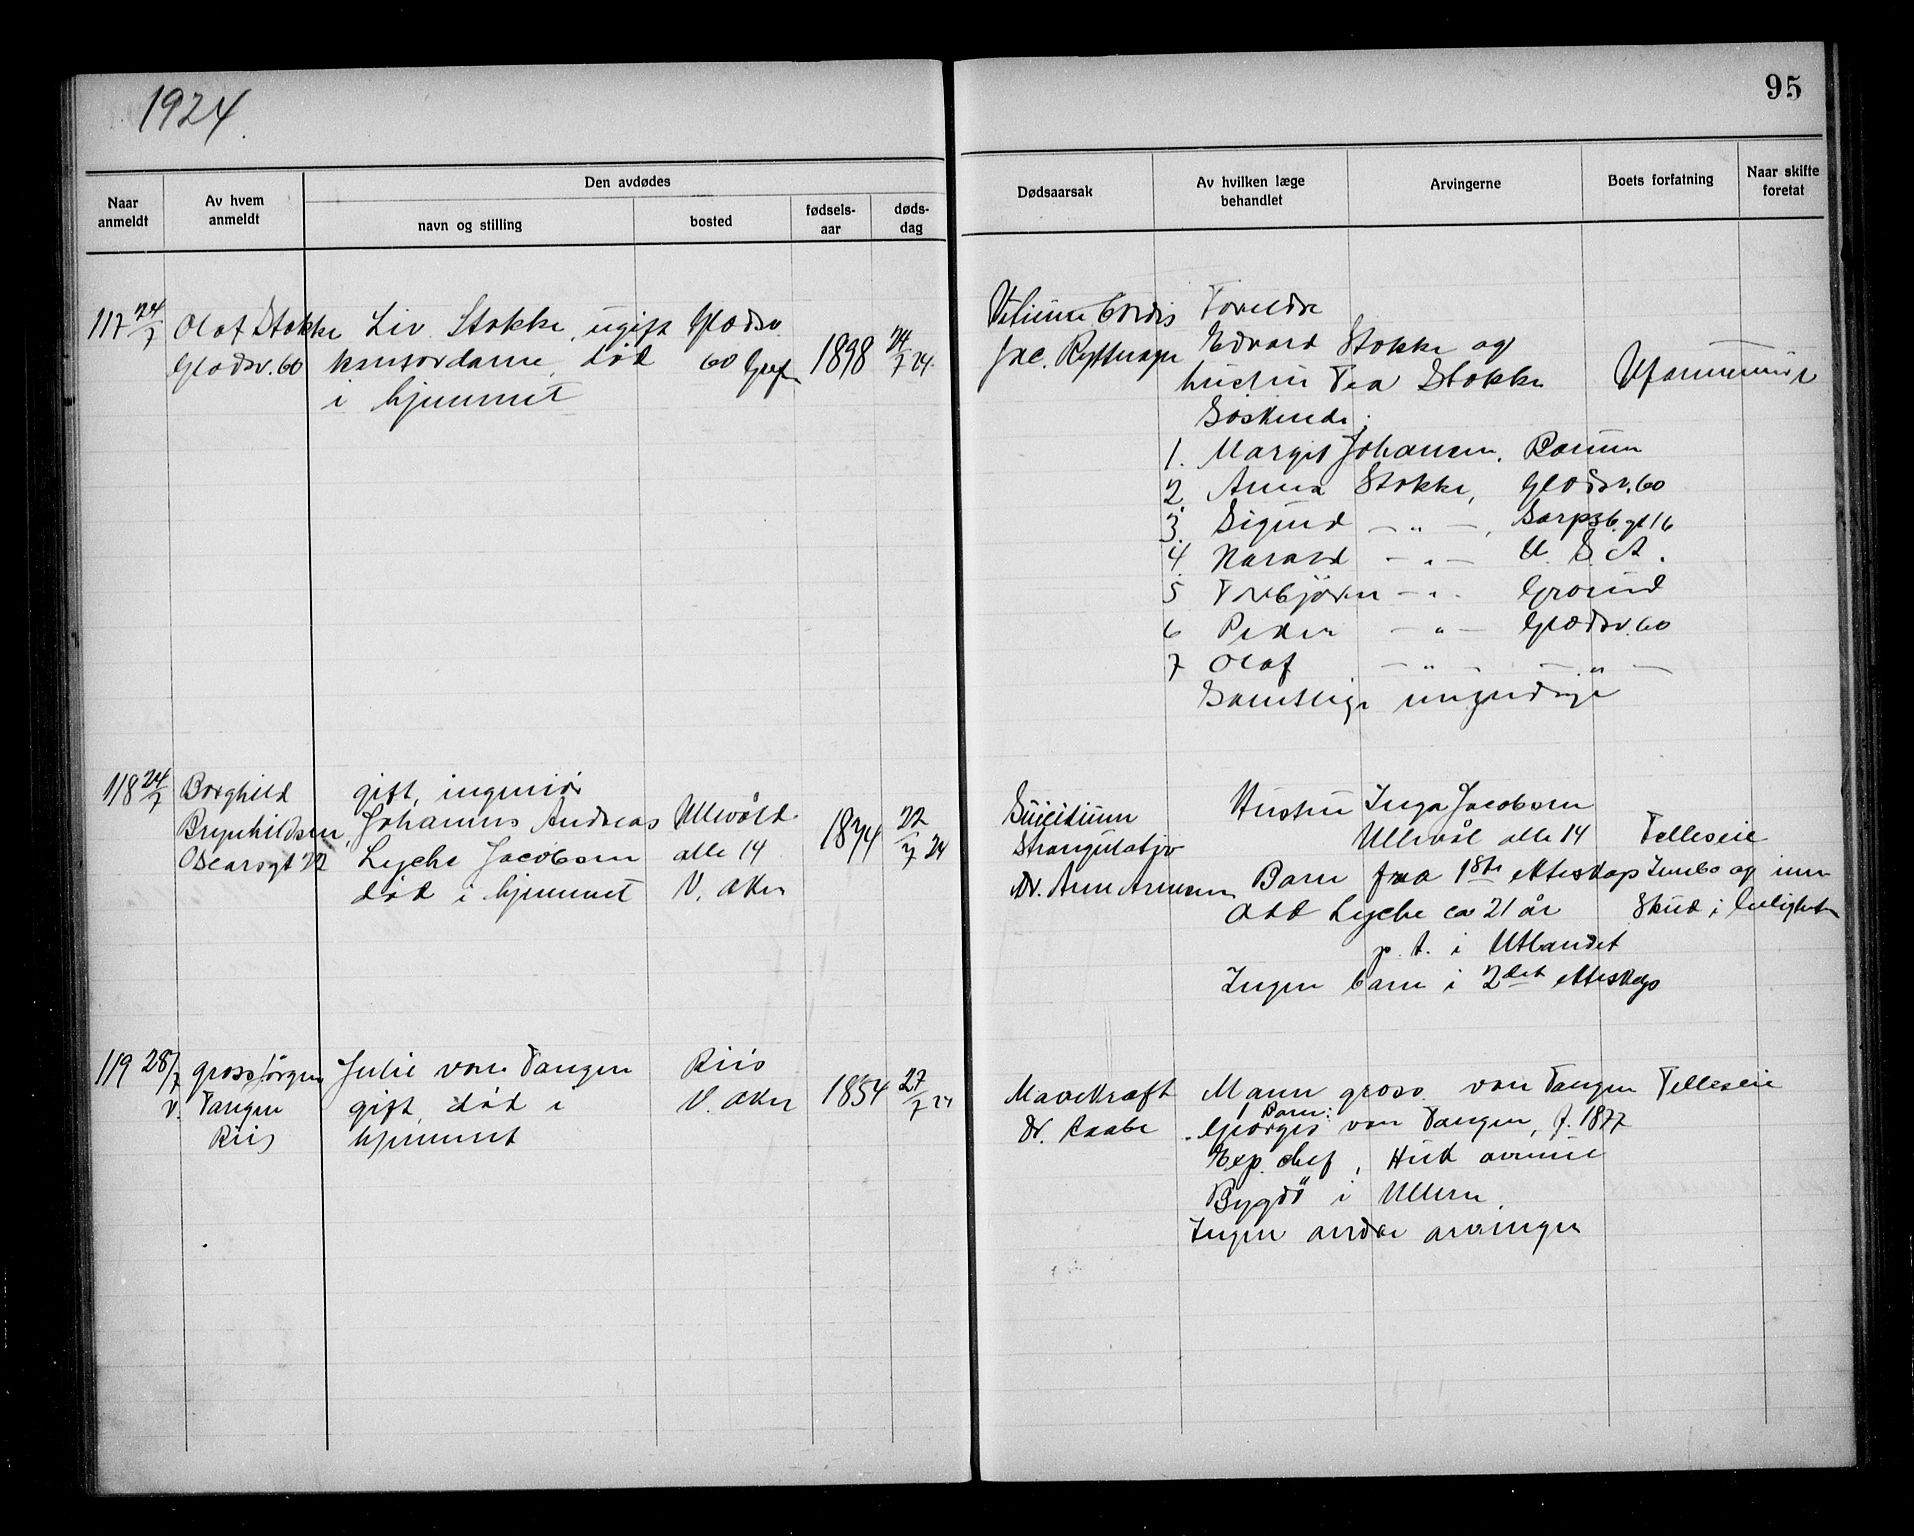 1924.
95
Naar anmeldt
Av hvem anmeldt
Den avdødes
navn og stilling
bosted
fødsels-aar
døds-dag
Dødsaarsak
Av hvilken læge behandlet
Arvingerne
Boets forfatning
Naar skifte foretat
117 24/7 Olaf Stokke Liv Stokke, ugift Gladsv.
Gladsv. 60 død 60 Gref 1898 24/7 24.
i hjemmet
Vitium Cordis
Jac.
Foreldre
Edvard Stokke og
hustru Tea Stokke
Uformuende
Søskende:
1. Margit Johansen, Bærum
2. Anna Stokke, Gladsv. 60
3. Sigurd — " —, Sarpsb. gt 16
4. Harald — " — U. S. A.
5 Torbjørn — " — Grorud
6 Peder — " — Gladsv. 60
7 Olaf — " — — " —
Samtlige myndige
118 24/7 Borghild
Brynhildsen,
Oscarsgt 22
gift, ingeniør
Johannes Andreas
Lyche Jacobsen
død i hjemmet
Ullevåld
alle 14
V. Aker
1874 22/7 24
Suicidium
Strangulatio
Dr. Arne
Hustru Inga Jacobsen
Ullevål alle 14
Barn fra 1ste ekteskap
Odd Lyche ca 21 år
p. t. i Utlandet
Ingen barn i 2det ekteskap
Felleseie
Innbo og inn
skud i leilighet
119 28/7 gross Jørgen
v. Tangen
Riis
Julie von Tangen
gift, død i
hjemmet
Riis
V. Aker
1854 27/7 24
Mavekræft
Dr. Raabe
Mann gross. von Tangen
Barn:
Georges von Tangen, f. 1877
Exp. chef, Huk avenue
Bygdö i Ullern
Ingen andre arvinger
Felleseie